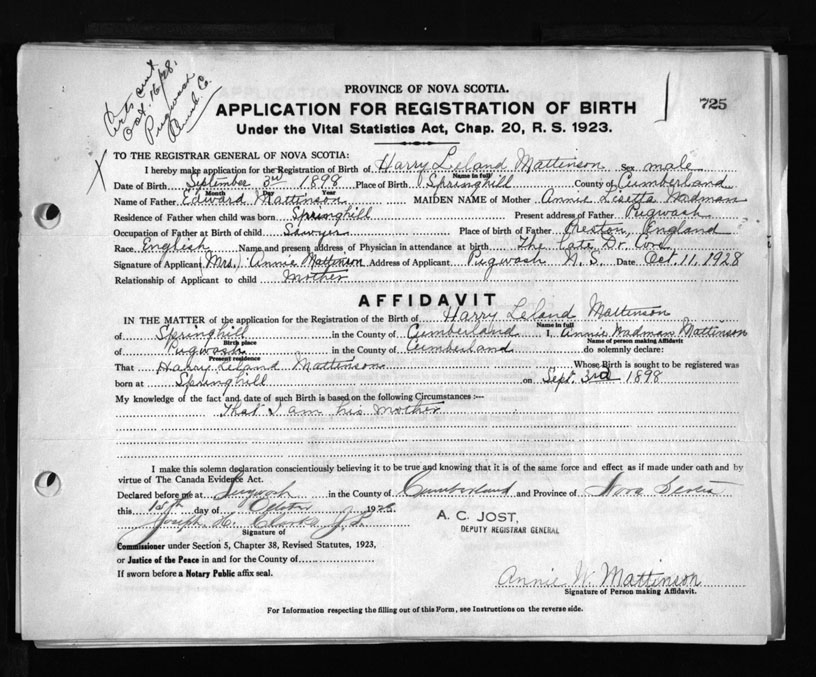 Certs sent
Oct. 16/28.
Pugwash
Cumb. C.
PROVINCE OF NOVA SCOTIA.
725
APPLICATION FOR REGISTRATION OF BIRTH
Under the Vital Statistics Act, Chap. 20, R. S. 1923.
X TO THE REGISTRAR GENERAL OF NOVA SCOTIA:
I hereby make application for the Registration of Birth of Harry Leland Mattinson Sex male
Name in full
Date of Birth September 3rd 1898 Place of Birth Springhill County of Cumberland
Month Day Year
Name of Father Edward Mattinson MAIDEN NAME of Mother Annie Lisetta Wadman
Residence of Father when child was born Springhill Present address of Father Pugwash
Occupation of Father at Birth of child Sawyer Place of birth of Father Preston, England
Race English Name and present address of Physician in attendance at birth The late Dr. Cove
Signature of Applicant (Mrs.) Annie Mattinson Address of Applicant Pugwash N. S. Date Oct. 11, 1928
Relationship of Applicant to child Mother
AFFIDAVIT
IN THE MATTER of the application for the Registration of the Birth of Harry Leland Mattinson
Name in full
of Springhill in the County of Cumberland I, Annie Wadman Mattinson
Birth place Name of person making Affidavit
of Pugwash in the County of Cumberland do solemnly declare:
Present residence
That Harry Leland Mattinson Whose Birth is sought to be registered was
born at Springhill on Sept. 3rd 1898
My knowledge of the fact and date of such Birth is based on the following Circumstances :—
That I am his mother
I make this solemn declaration conscientiously believing it to be true and knowing that it is of the same force and effect as if made under oath and by
virtue of The Canada Evidence Act.
Declared before me at Pugwash in the County of Cumberland and Province of Nova Scotia
this 15th day of October 1928
Joseph H. Clarke J. P.
A. C. JOST,
DEPUTY REGISTRAR GENERAL
Signature of
Commissioner under Section 5, Chapter 38, Revised Statutes, 1923,
or Justice of the Peace in and for the County of
If sworn before a Notary Public affix seal.
Annie W. Mattinson
Signature of Person making Affidavit.
For Information respecting the filling out of this Form, see Instructions on the reverse side.